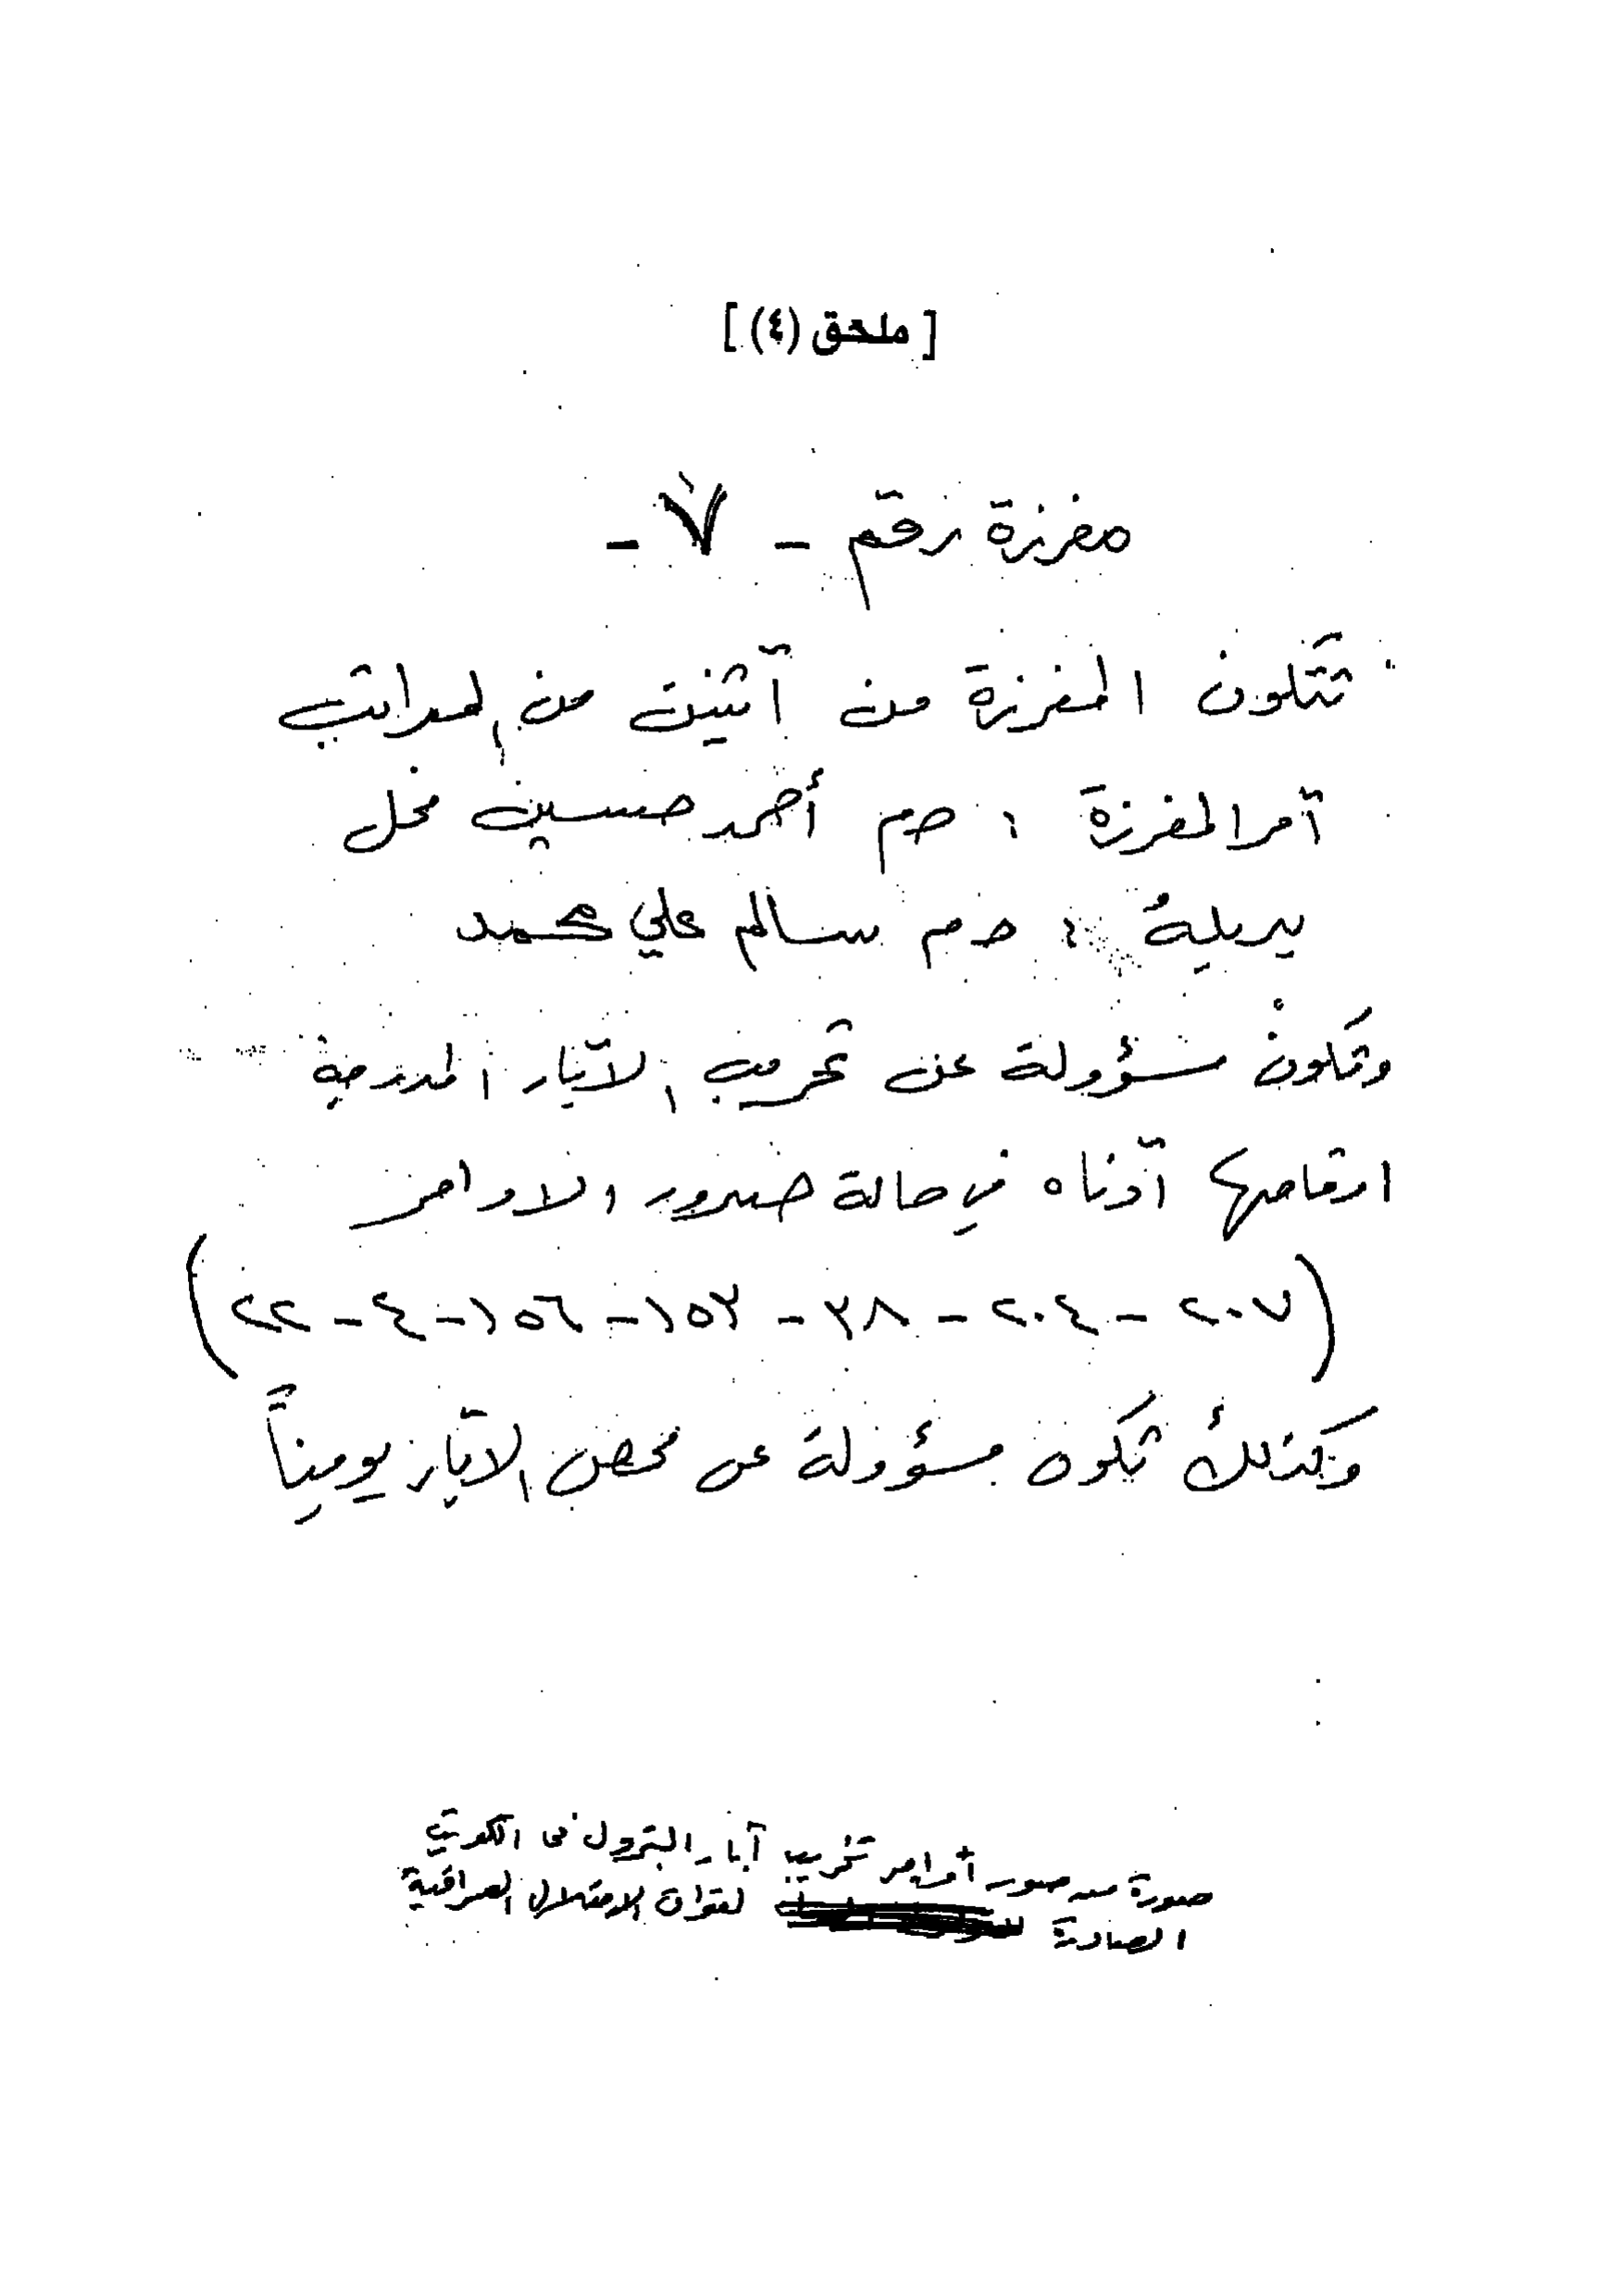 [ ملحق (٤) ]
مفرزة رقم - ٧ -
تتكون المفرزة من آثنين من المراتب
آمر المفرزة : ح م أحمد حسين فحل
بديله : ح م سالم علي محمد
وتكون مسؤولة عن تخريب الآبار المدرجة
ارقامها آدناه في حالة صدور الاوامر
(٢٠٧ - ٢٠٤ - ٣٨ - ١٥٣ - ١٥٦ - ٤ - ٢٢)
وكذلك تكون مسؤولة عن فحص الآبار يومياً
صورة من صور أوامر تخريب آبار البترول فى الكويت
الصادرة لقوات الاحتلال العراقية